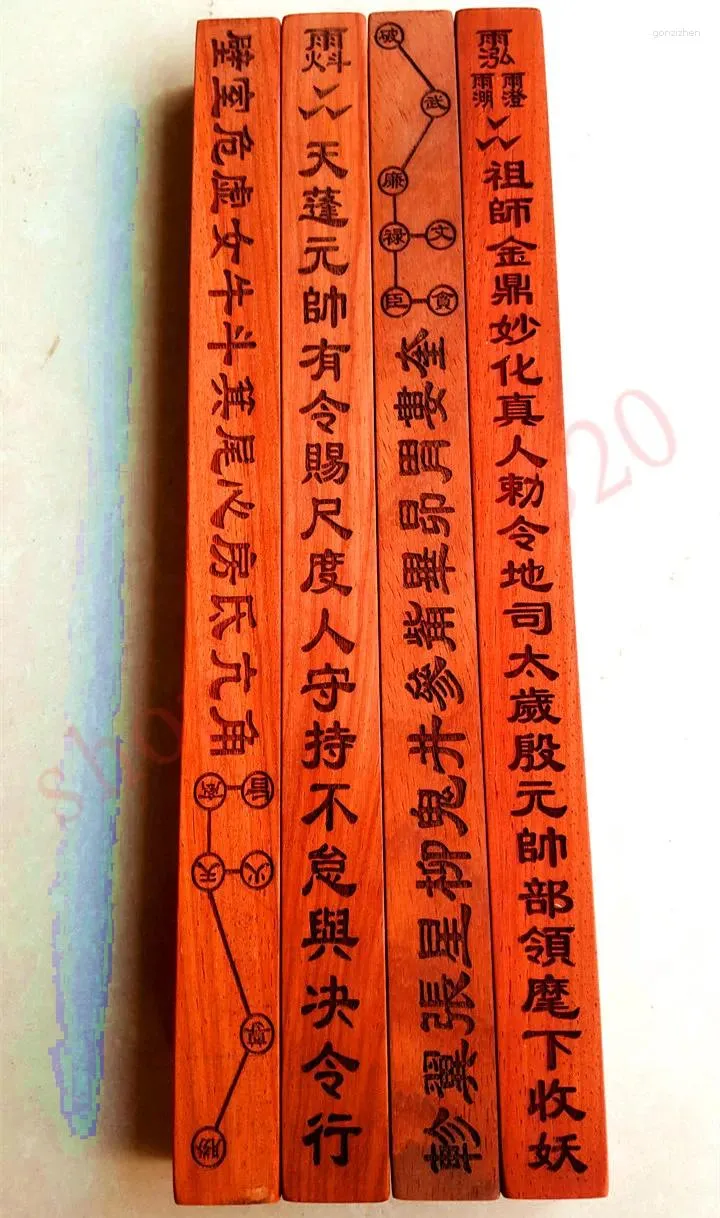 gonzizhen
祖師金鼎妙化真人勅令地司太歲殷元帥部領麾下收妖
破
武
廉
禄 文
臣 貪
奎婁胃昴畢觜參井鬼柳星張翼軫
天蓬元帥有令賜尺度人守持不怠與决令行
壁室危虛女牛斗箕尾心房氐亢角
天 火
20